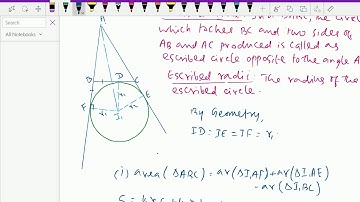 Search
All Notebooks
which toches BC and two sides of
AB and AC produced is called as
escribed circle opposite to the angle A
Escribed radii: The radius of the
escribed circle.
By Geometry,
ID = IE = IF = r₁
(i) area (ΔABC) = ar(ΔI₁AF) + ar(ΔI₁AE)
- ar(ΔI₁BC)
A
B
D
C
F
E
r₁
r₁
r₁
I₁